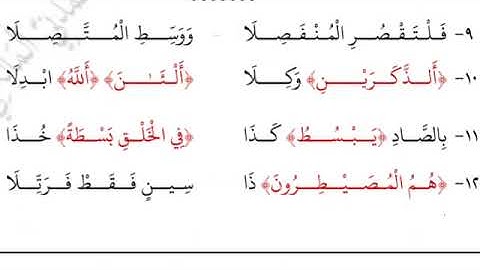 ٩- فَلْتَقْصُرِ الْمُنْفَصِلَا وَوَسِّطِ الْمُتَّصِلَا
١٠- ﴿ءَآلذَّكَرَيْنِ﴾ وَكِلَا ﴿ءَآلْـَٰٔنَ﴾ ﴿ءَآللَّهُ﴾ ابْدِلَا
١١- بِالصَّادِ ﴿يَبْسُطُ﴾ كَذَا ﴿فِي الْخَلْقِ بَسْطَةً﴾ خُذَا
١٢- ﴿هُمُ الْمُصَيْطِرُونَ﴾ ذَا سِينٍ فَقَطْ فَرَتِّلَا